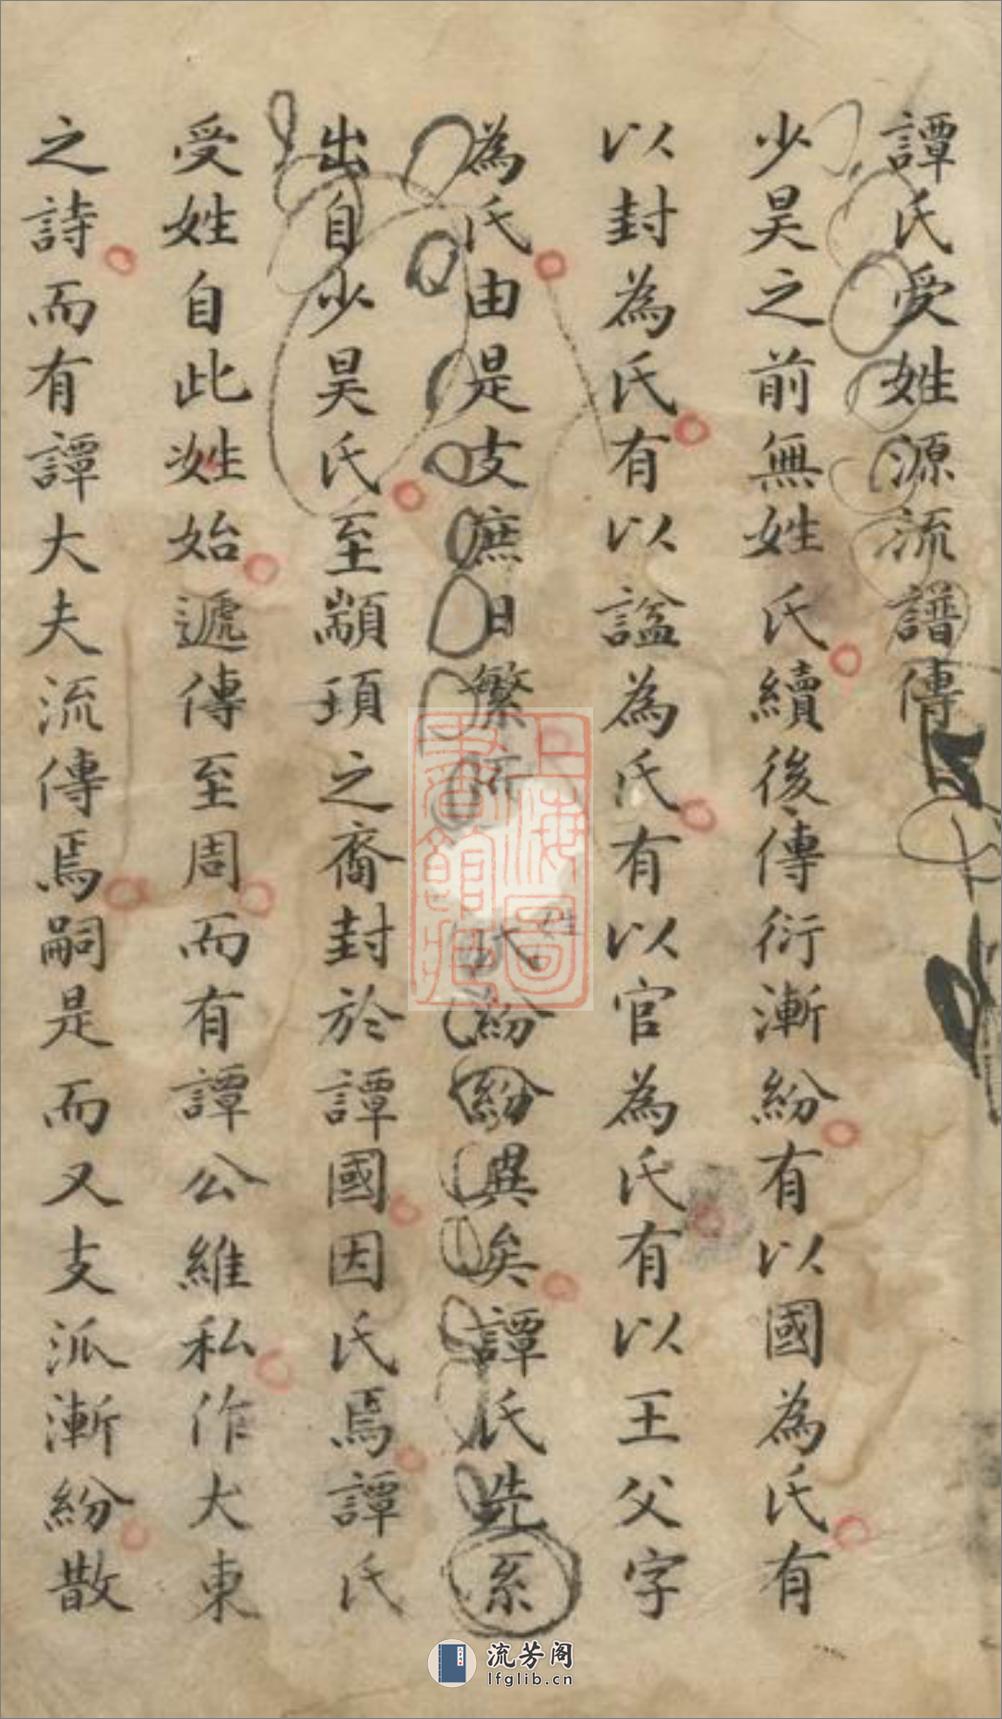 譚氏受姓源流譜傳
少昊之前無姓氏續後傳衍漸紛有以國為氏有
以封為氏有以諡為氏有以官為氏有以王父字
為氏由是支庶日繁所姓氏紛紛異矣譚氏先系
出自少昊氏至顓頊之裔封於譚國因氏焉譚氏
受姓自此姓始遞傳至周而有譚公維私作大東
之詩而有譚大夫流傳焉嗣是而又支派漸紛散
上海圖書館藏
流芳阁
lfglib.cn